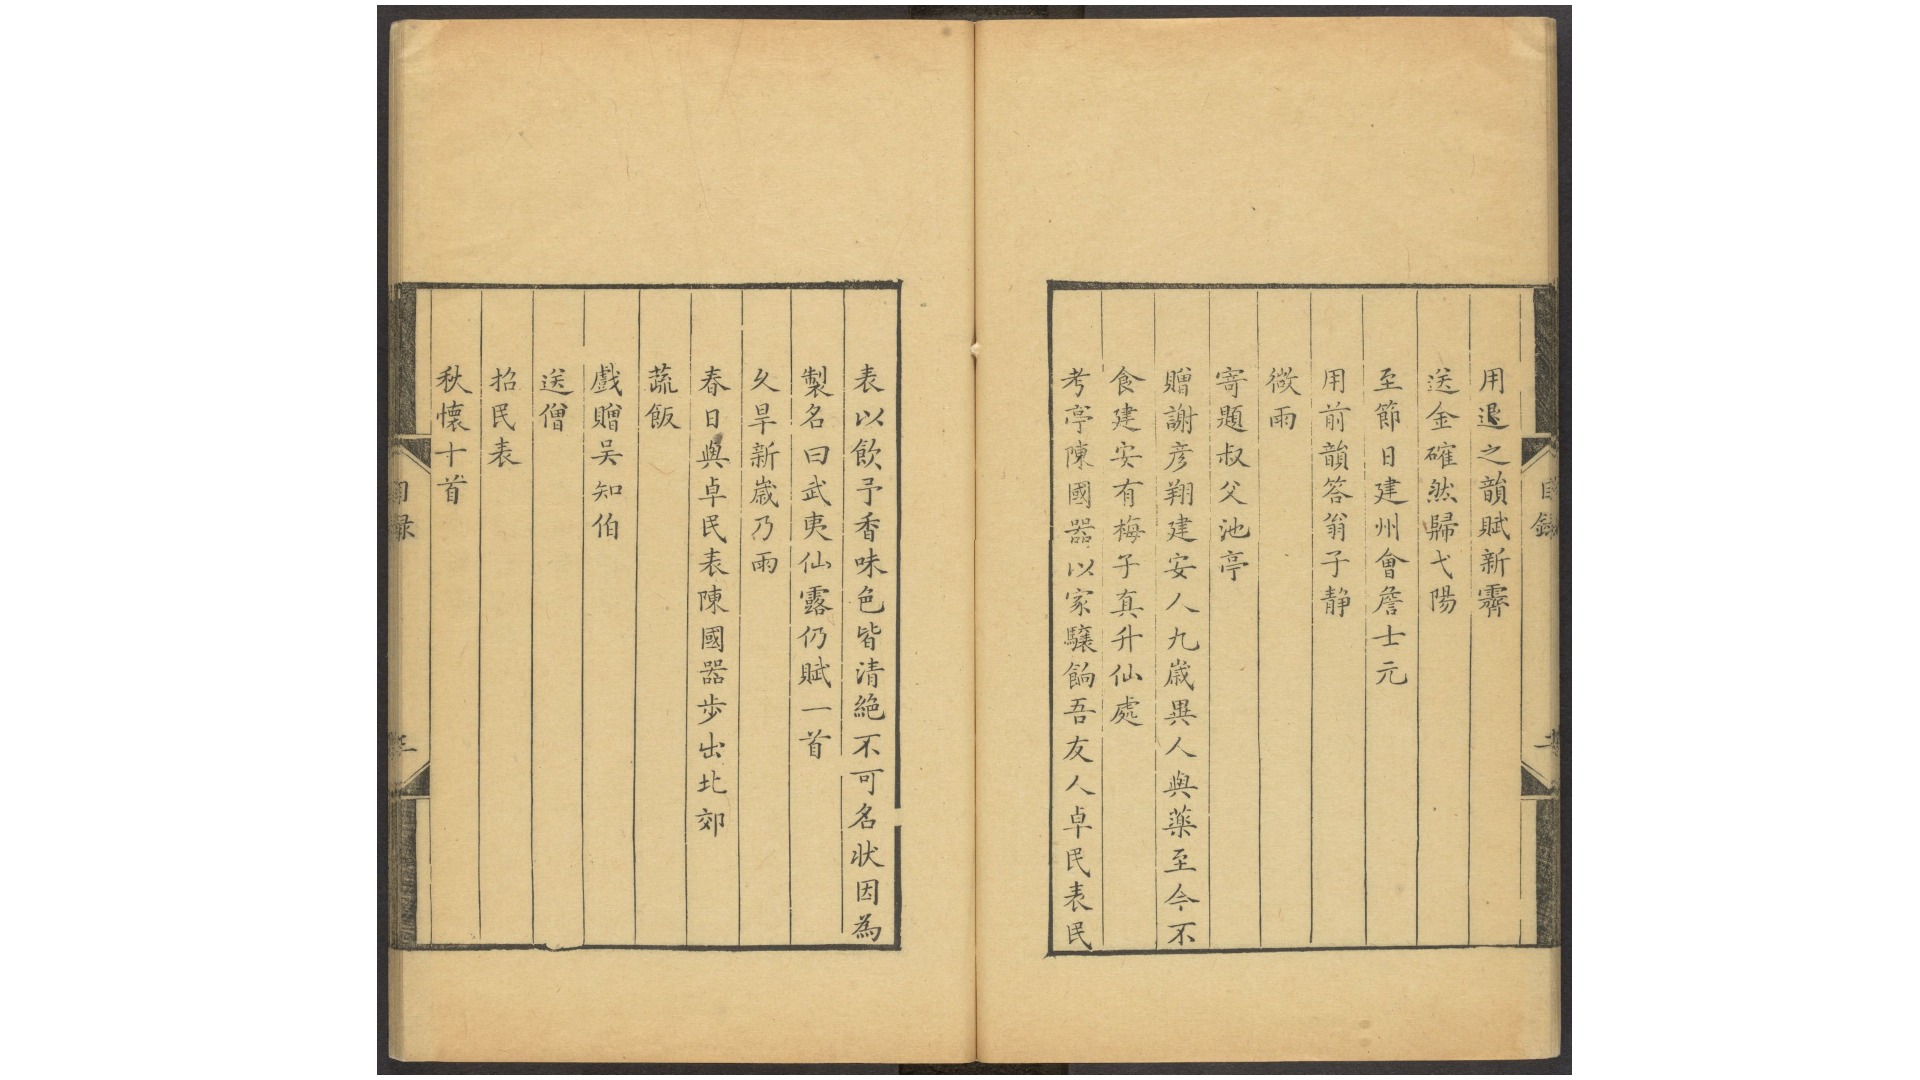 用退之韻賦新霽
送金確然歸弋陽
至節日建州會詹士元
用前韻答翁子静
微雨
寄題叔父池亭
贈謝彦翔建安人九歳異人與藥至今不
食建安有梅子真升仙處
考亭陳國器以家驤餉吾友人卓民表民
表以飲予香味色皆清絶不可名状因為
製名曰武夷仙露仍賦一首
久旱新歳乃雨
春日與卓民表陳國器步出北郊
蔬飯
戲贈吴知伯
送僧
招民表
秋懷十首
目録
三